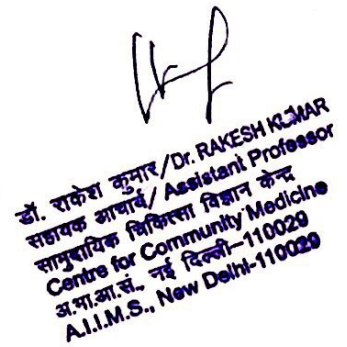 डॉ. राकेश कुमार/Dr. RAKESH KUMAR
सहायक आचार्य/Assistant Professor
सामुदायिक चिकित्सा विज्ञान केन्द्र
Centre for Community Medicine
अ.भा.आ.सं., नई दिल्ली-110029
A.I.I.M.S., New Delhi-110029